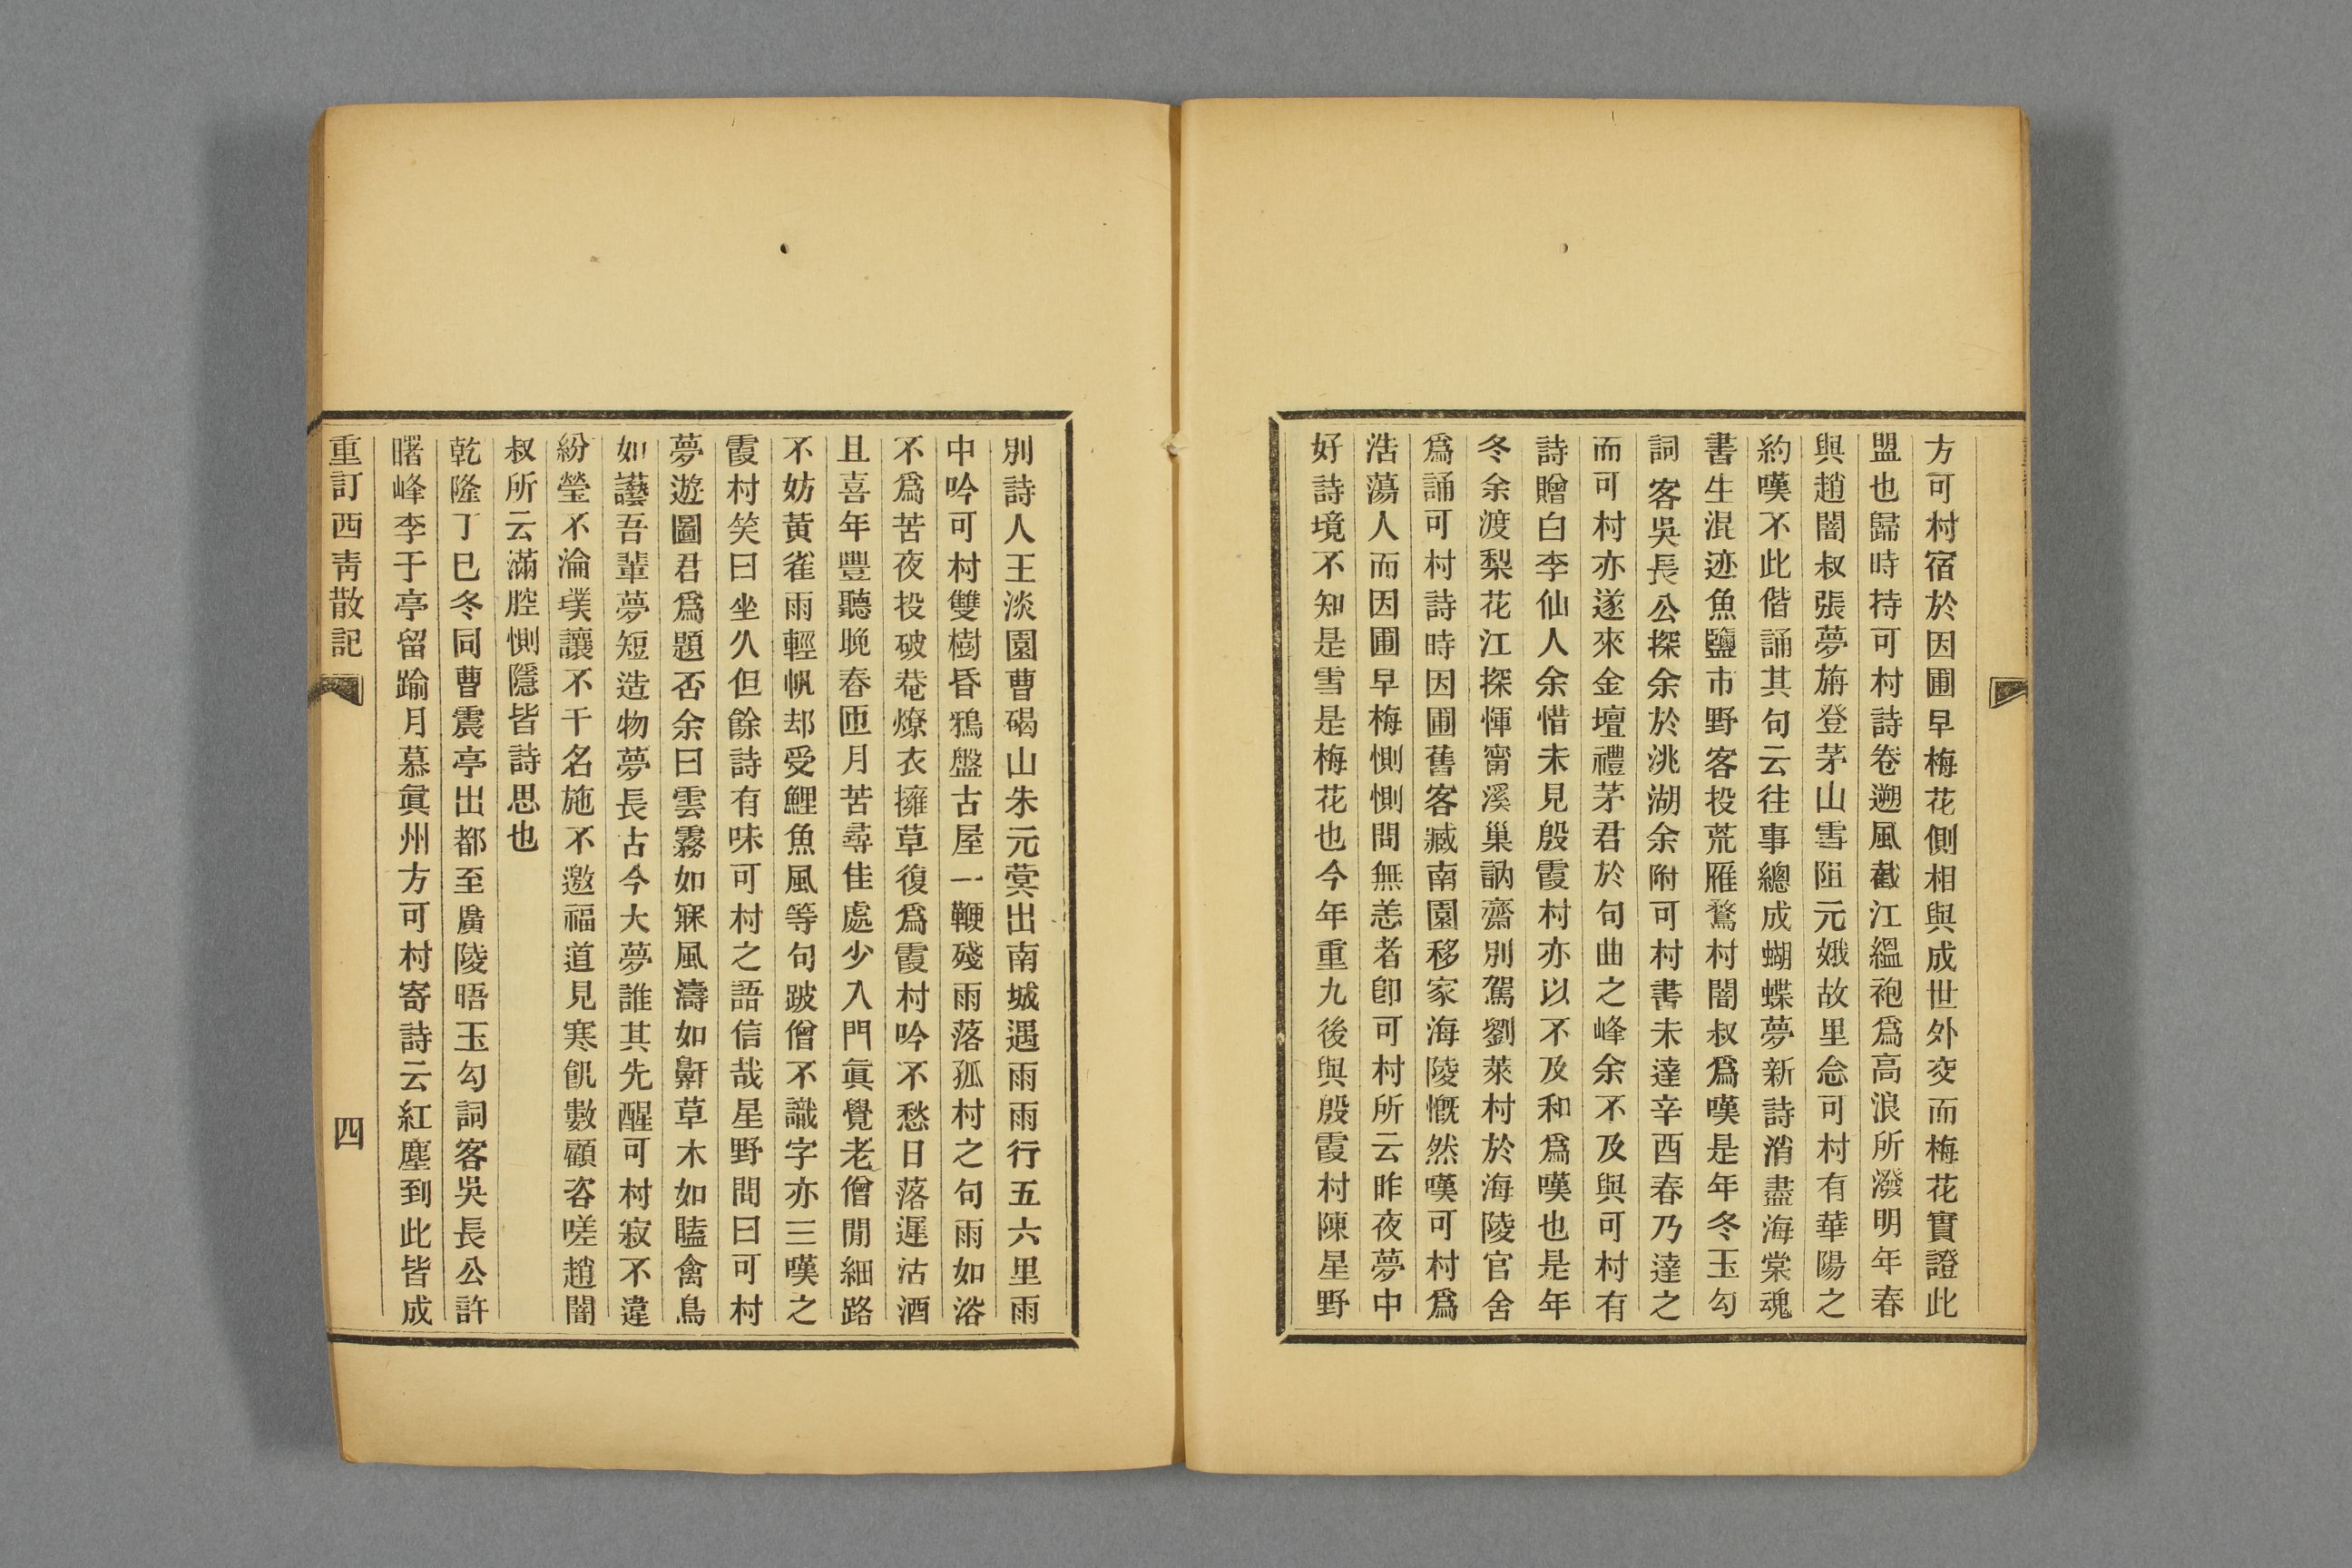 方可村宿於因圃早梅花側相與成世外交而梅花實證此
盟也歸時持可村詩卷遡風截江縕袍爲高浪所潑明年春
與趙闇叔張夢旃登茅山雪阻元娥故里念可村有華陽之
約嘆不此偕誦其句云往事總成蝴蝶夢新詩消盡海棠魂
書生混迹魚鹽市野客投荒雁鶩村闇叔爲嘆是年冬玉勾
詞客吳長公探余於洮湖余附可村書未達辛酉春乃達之
而可村亦遂來金壇禮茅君於句曲之峰余不及與可村有
詩贈白李仙人余惜未見殷霞村亦以不及和爲嘆也是年
冬余渡梨花江探惲甯溪巢訥齋別駕劉萊村於海陵官舍
爲誦可村詩時因圃舊客臧南園移家海陵慨然嘆可村爲
浩蕩人而因圃早梅惻惻問無恙者卽可村所云昨夜夢中
好詩境不知是雪是梅花也今年重九後與殷霞村陳星野
別詩人王淡園曹碣山朱元蓂出南城遇雨雨行五六里雨
中吟可村雙樹昏鴉盤古屋一鞭殘雨落孤村之句雨如浴
不爲苦夜投破菴燎衣擁草復爲霞村吟不愁日落遲沽酒
且喜年豐聽晚舂匝月苦尋佳處少入門眞覺老僧閒細路
不妨黃雀雨輕帆却受鯉魚風等句跛僧不識字亦三嘆之
霞村笑曰坐久但餘詩有味可村之語信哉星野問曰可村
夢遊圖君爲題否余曰雲霧如寐風濤如鼾草木如瞌禽鳥
如讛吾輩夢短造物夢長古今大夢誰其先醒可村寂不違
紛瑩不淪璞讓不干名施不邀福道見寒飢數顧咨嗟趙闇
叔所云滿腔惻隱皆詩思也
乾隆丁巳冬同曹震亭出都至廣陵晤玉勾詞客吳長公許
曙峰李于亭留踰月慕眞州方可村寄詩云紅塵到此皆成
重訂西青散記
四